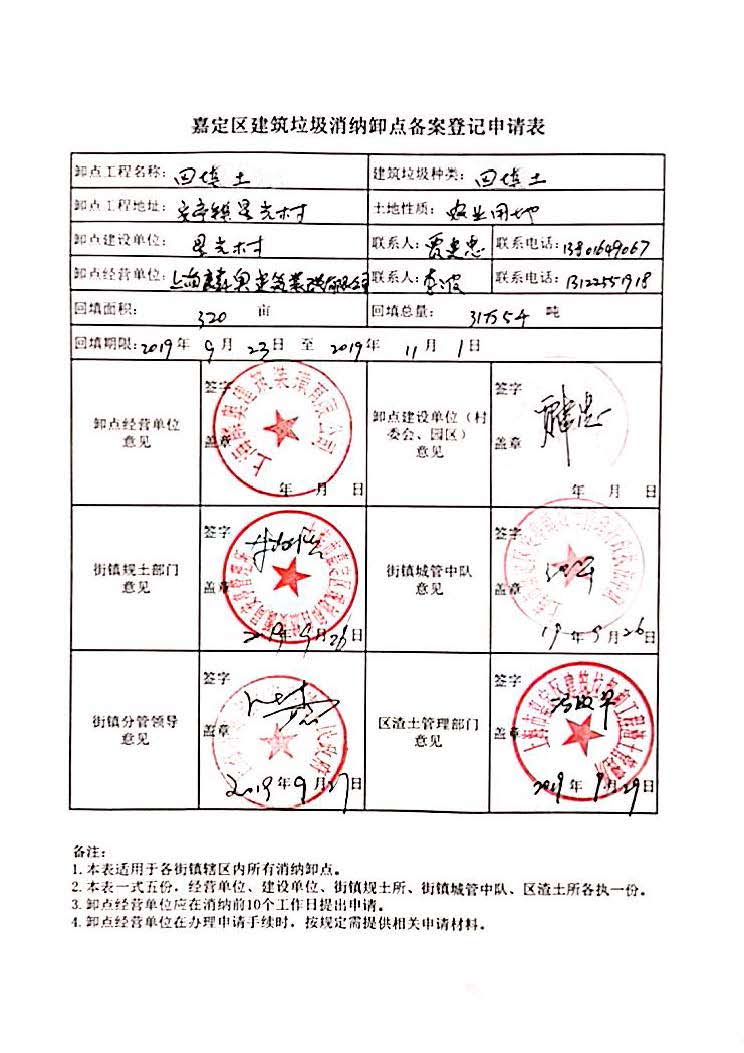 嘉定区建筑垃圾消纳卸点备案登记申请表
卸点工程名称：回填土 建筑垃圾种类：回填土
卸点工程地址：安亭镇星光村 土地性质：农业用地
卸点建设单位：星光村 联系人： 联系电话：13801649067
卸点经营单位：上海 建筑装潢有限公司 联系人：李波 联系电话：13122551918
回填面积：320 亩 回填总量：31万54 吨
回填期限：2019年 9月 23日 至 2019年 11月 1日
卸点经营单位
意见
签字
盖章
年 月 日
卸点建设单位（村
委会、园区）
意见
签字
盖章
年 月 日
街镇规土部门
意见
签字
盖章
2019年9月26日
街镇城管中队
意见
签字
盖章
19年9月26日
街镇分管领导
意见
签字
盖章
2019年9月27日
区渣土管理部门
意见
签字
盖章
2019年9月29日
备注：
1. 本表适用于各街镇辖区内所有消纳卸点。
2. 本表一式五份，经营单位、建设单位、街镇规土所、街镇城管中队、区渣土所各执一份。
3. 卸点经营单位应在消纳前10个工作日提出申请。
4. 卸点经营单位在办理申请手续时，按规定需提供相关申请材料。